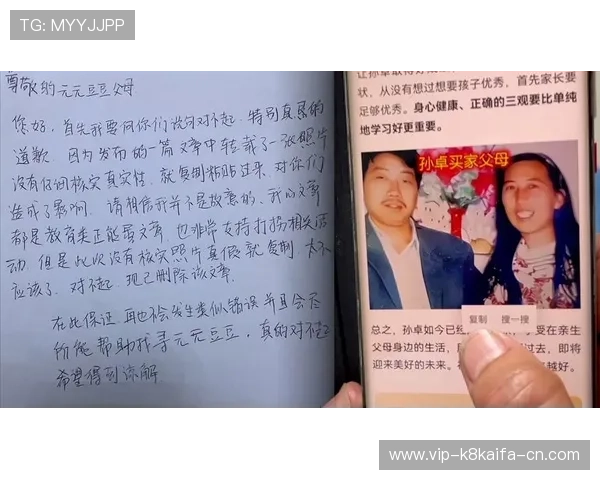 TG: MYYJJPP
尊敬的元元豆豆父母
您好，首先我要向你们说句对不起，特别真恳的
道歉，因为发布的一篇文章中转载了一张照片
没有仔细核实真实性，就复制粘贴过来，对你们
造成了影响，请相信我并不是故意的，我的文章
都是教育类正能量文章，也非常支持打拐相关活
动，但是此次没有核实照片真假就复制，太不
应该了，对不起，现已删除该文章。
在此保证，再也不会发生类似错误并且会尽
所能帮助找寻元元豆豆，真的对不起
希望得到谅解
让孙卓取得好成
状，从没有想过想要孩子优秀，首先家长要
足够优秀。身心健康、正确的三观要比单纯
地学习好更重要。
孙卓买家父母
复制 搜一搜
总之，孙卓如今已经 享受在亲生
父母身边的生活， 过去，即将
迎来美好的未来。 越好。
www.vip-k8kaifa-cn.com